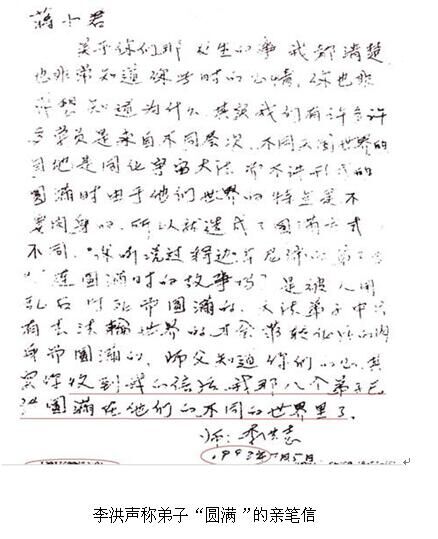 蒋小君
关于你们那发生的事我都清楚
也非常知道你当时的心情,你也非
常想知道为什么,其实我们有许多许
多学员是来自不同层次、不同天国世界的
目地是同化宇宙大法
圆满时由于他们世界的特点是不
要肉身的,所以就造成了圆满方式
不同,你听说过释迦牟尼佛的弟子
连圆满时的故事吗 是被人用
乱石砸死而圆满的,大法弟子中只
有去法轮世界的才会带转化的肉
身而圆满的,师父知道你们的心,其
实你收到我的信后,我那八个弟子已
经圆满在他们的不同的世界里了.
师:李洪志
月5日
李洪志声称弟子“圆满”的亲笔信